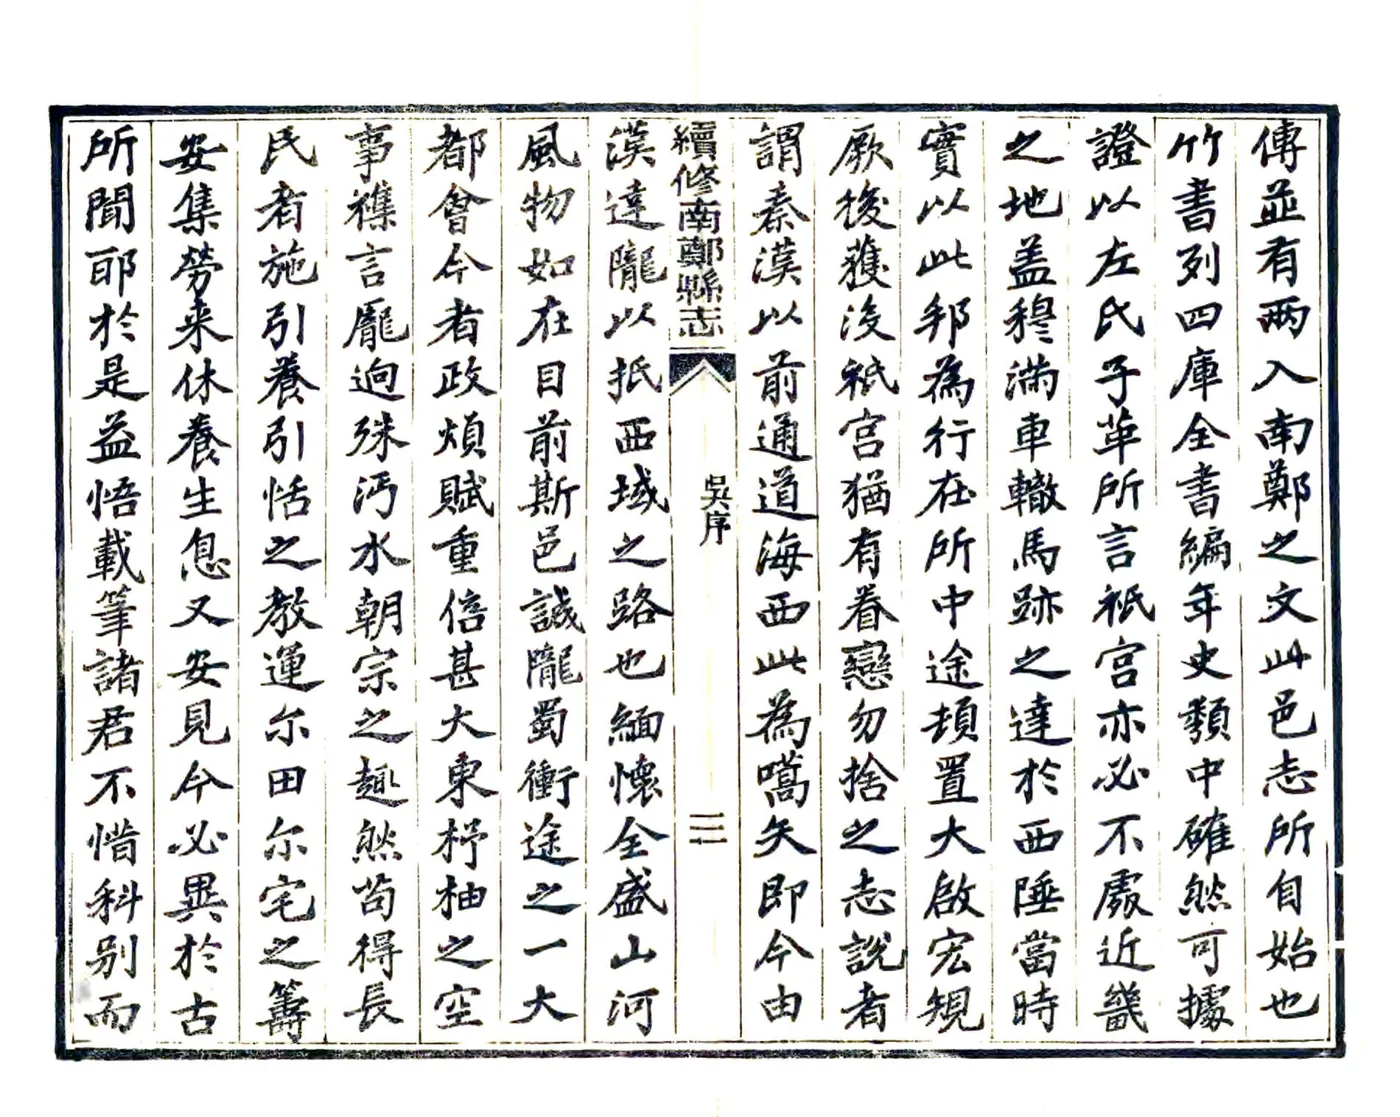 傳並有两入南鄭之文此邑志所自始也
竹書列四庫全書編年史類中確然可據
證以左氏子革所言祇宮亦必不處近畿
之地盖穆滿車轍馬跡之達於西陲當時
實以此邦為行在所中途頓置大啟宏規
厥後獲沒祇宮猶有眷戀勿捨之志說者
謂秦漢以前通道海西此為嚆矢即今由
續修南鄭縣志
吳序
三
漢達隴以抵西域之路也緬懷全盛山河
風物如在目前斯邑誠隴蜀衝途之一大
都會今者政煩賦重倍甚大東杼柚之空
事襍言龐逈殊沔水朝宗之趣然苟得長
民者施引養引恬之教運尔田尔宅之籌
安集勞来休養生息又安見今必異於古
所聞耶於是益悟載筆諸君不惜科别而